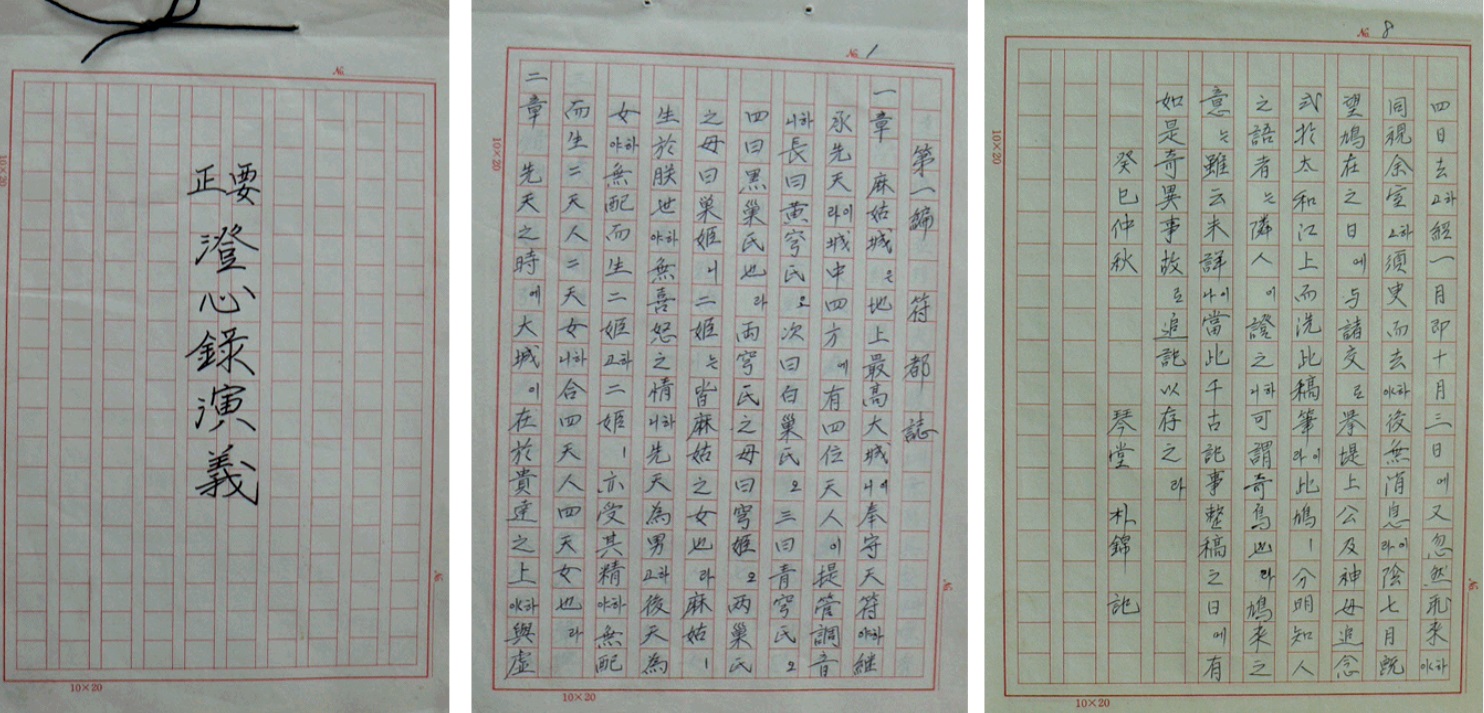 要正
澄心錄演義
10×20
№
10×20
№ 1
第一編 符都誌
一章 麻姑城은地上最高大城이니奉守天符하야繼
承先天이라城中四方에有四位天人이提管調音
하니長曰黃穹氏오次曰白巢氏오三曰青穹氏오
四曰黑巢氏也라両穹氏之母曰穹姬오两巢氏
之母曰巢姬니二姬는皆麻姑之女也라麻姑ㅣ
生於朕世하야無喜怒之情하니先天為男하고後天為
女하야無配而生二姬하고二姬ㅣ亦受其精하야無配
而生二天人二天女하니合四天人四天女也라
二章 先天之時에大城이在於實達之上하야與虛
10×20
№ 8
四日去하고經一月即十月三日에又忽然飛来하야
同視余室하고須臾而去하야後無消息이라陰七月既
望鳩在之日에与諸友로擧堤上公及神母追念
式於太和江上而洗此稿筆이라此鳩ㅣ分明知人
之語者는隣人이證之하니可謂奇鳥也라鳩来之
意는雖云未詳이나當此千古記事整稿之日에有
如是奇異事故로追記以存之라
癸巳仲秋 琴堂 朴錦 記
10×20